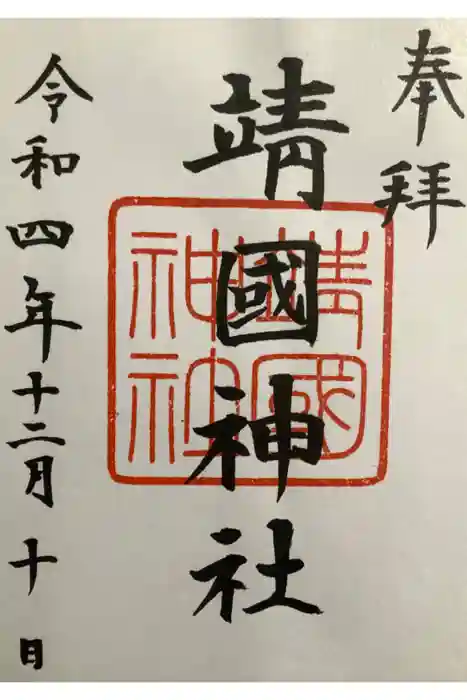 奉拝
靖國神社
靖國神社
令和四年十二月十日